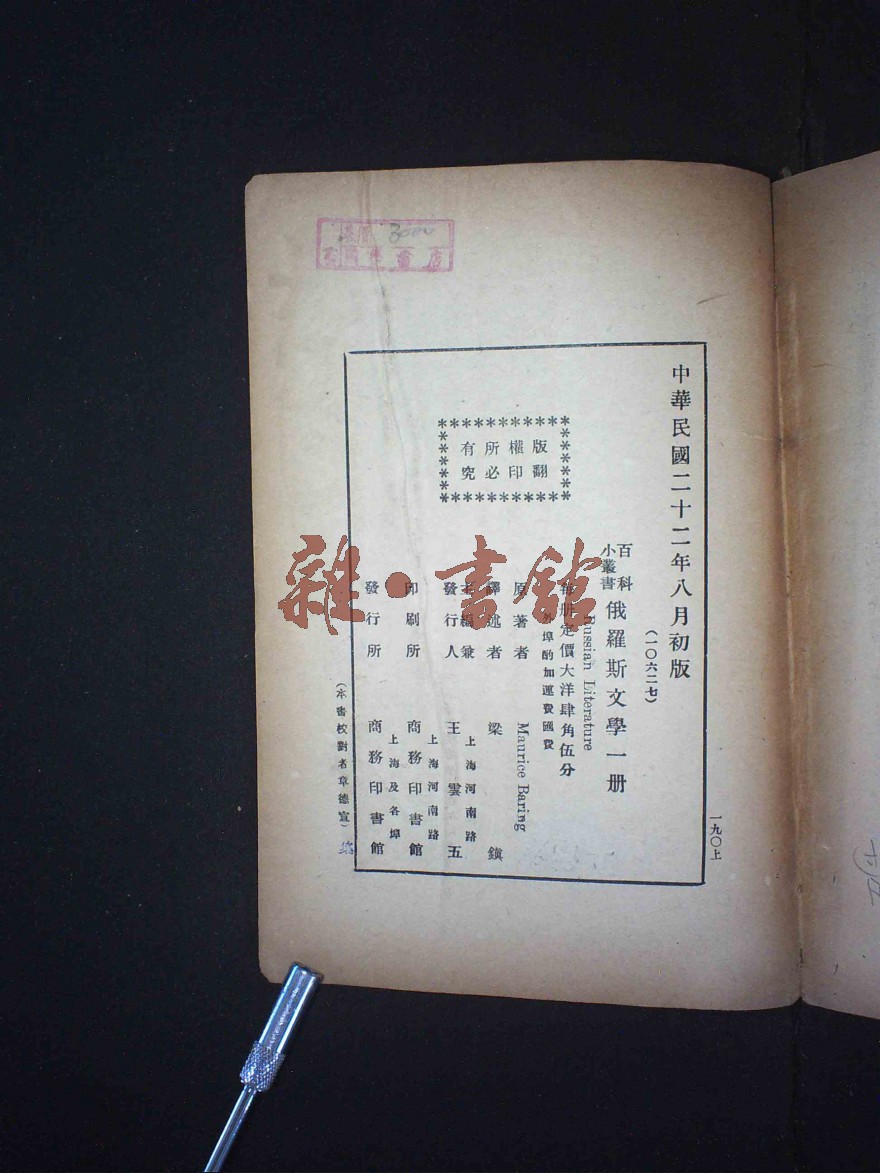 中華民國二十二年八月初版
(一〇六二七)
百科
小叢書
俄羅斯文學一册
Russian Literature
每册定價大洋肆角伍分
外埠酌加運費匯費
原著者 Maurice Baring
譯述者 梁鎮
上海河南路
主編兼
發行人 王雲五
上海河南路
印刷所 商務印書館
上海及各埠
發行所 商務印書館
(本書校對者章德宣)
版權所有
翻印必究
一九〇上
雜·書館
3000
書店